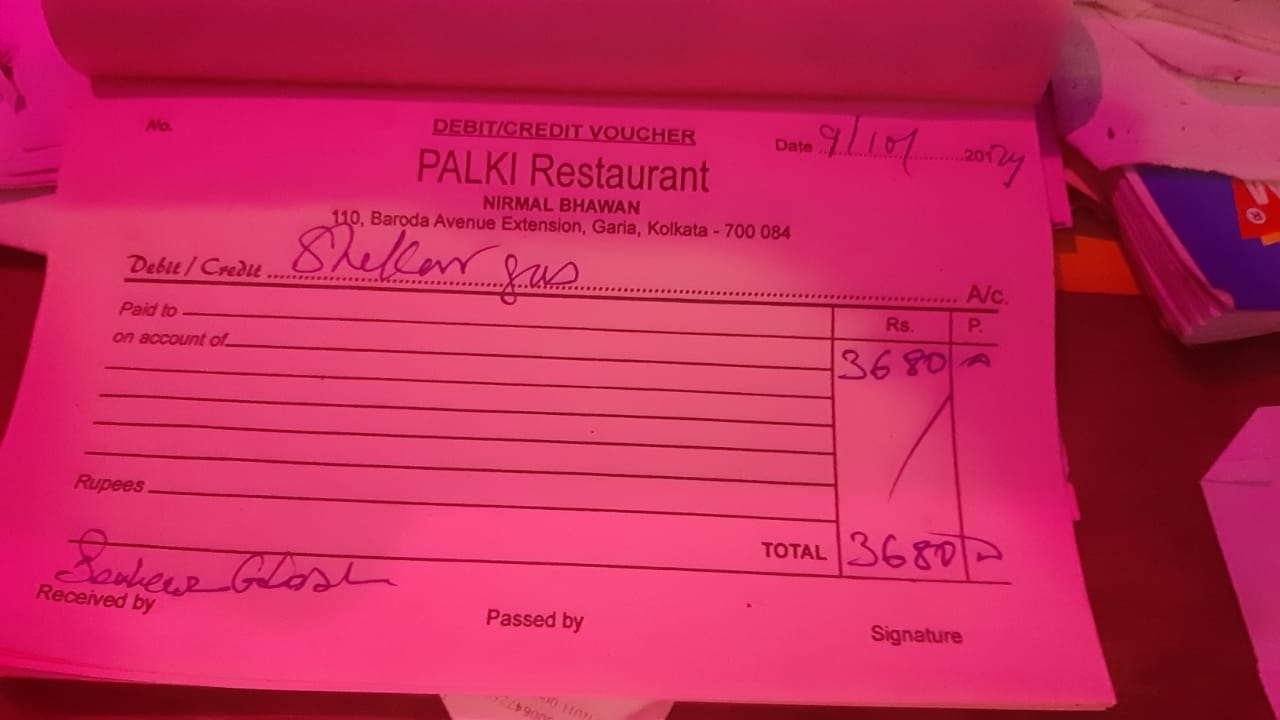 No.
DEBIT/CREDIT VOUCHER
Date 9/10/ 20124
PALKI Restaurant
NIRMAL BHAWAN
110, Baroda Avenue Extension, Garia, Kolkata - 700 084
Debit / Credit gas A/c.
Paid to Rs. P.
on account of 3680
Rupees
TOTAL 3680
Ghosh
Received by
Passed by
Signature